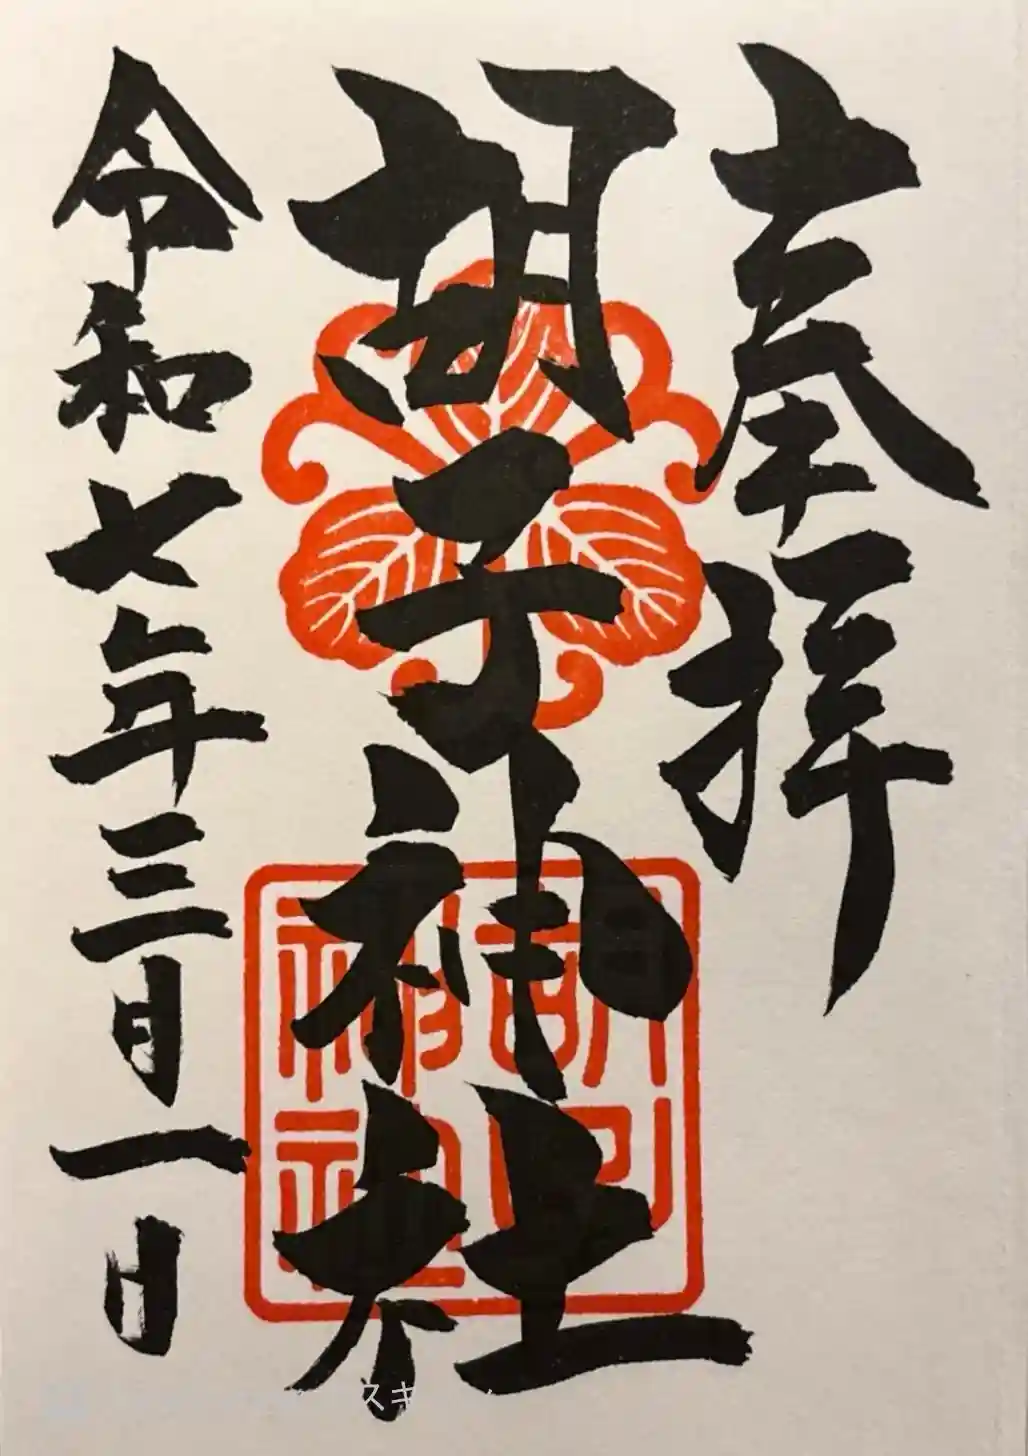 奉拝
胡子神社
令和七年三月一日
胡子
神社